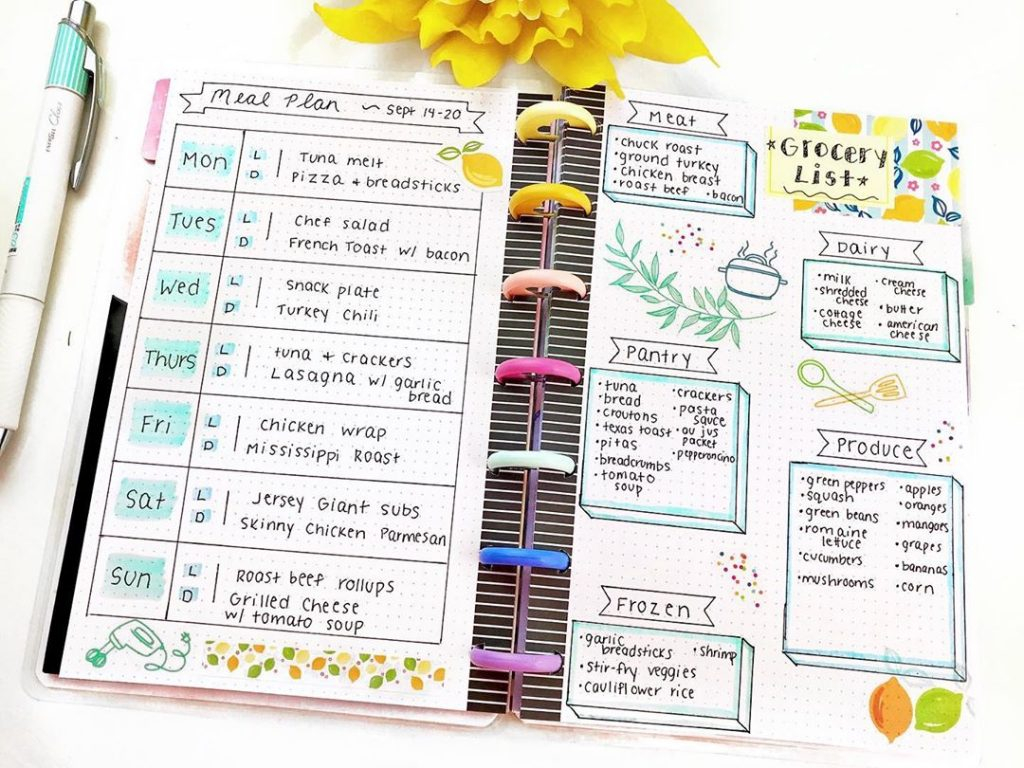 Meal Plan ~ Sept 14-20
Mon
L
Tuna melt
D
Pizza + breadsticks
Tues
L
Chef salad
D
French Toast w/ bacon
Wed
L
snack plate
D
Turkey Chili
Thurs
L
tuna + crackers
D
Lasagna w/ garlic
bread
Fri
L
chicken wrap
D
Mississippi Roast
Sat
L
Jersey Giant subs
D
Skinny Chicken Parmesan
Sun
L
Roast beef rollups
D
Grilled Cheese
w/ tomato soup
Grocery
List
Meat
• chuck roast
• ground turkey
• chicken breast
• roast beef • bacon
Dairy
• milk
• shredded
cheese
• cottage
cheese
• cream
cheese
• butter
• american
cheese
Pantry
• tuna
• bread
• croutons
• texas toast
• pitas
• breadcrumbs
• tomato
soup
• crackers
• pasta
sauce
• au jus
packet
• pepperoncino
Produce
• green peppers
• squash
• green beans
• romaine
lettuce
• cucumbers
• mushrooms
• apples
• oranges
• mangoes
• grapes
• bananas
• corn
Frozen
• garlic
breadsticks
• shrimp
• stir-fry veggies
• cauliflower rice